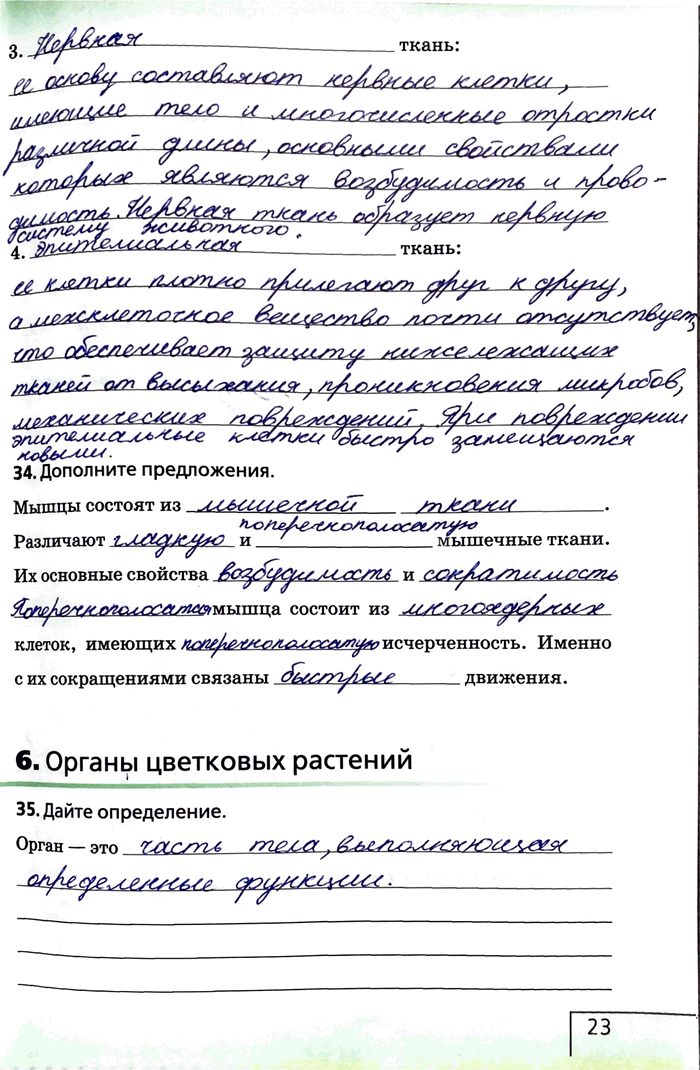 3. Нервная ткань:
ее основу составляют нервные клетки,
имеющие тело и многочисленные отростки
различной длины, основными свойствами
которых являются возбудимость и прово-
димость. Нервная ткань образует нервную
систему животного.
4. Эпителиальная ткань:
ее клетки плотно прилегают друг к другу,
а межклеточное вещество почти отсутствует,
что обеспечивает защиту нижележащих
тканей от высыхания, проникновения микробов,
механических повреждений. При повреждении
эпителиальные клетки быстро замещаются
новыми.
34. Дополните предложения.
Мышцы состоят из мышечной ткани.
Различают гладкую и поперечнополосатую мышечные ткани.
Их основные свойства возбудимость и сократимость
Поперечнополосатая мышца состоит из многоядерных
клеток, имеющих поперечнополосатую исчерченность. Именно
с их сокращениями связаны быстрые движения.
6. Органы цветковых растений
35. Дайте определение.
Орган — это часть тела, выполняющая
определенные функции.
23